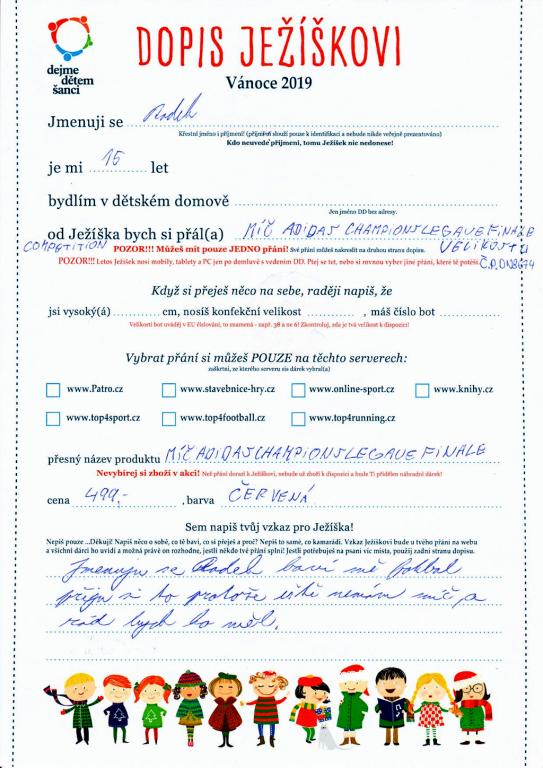 dejme
dětem
šanci
DOPIS JEŽÍŠKOVI
Vánoce 2019
Jmenuji se Radek
Křestní jméno i příjmení! (příjmení slouží pouze k identifikaci a nebude nikde veřejně prezentováno)
Kdo neuvede příjmení, tomu Ježíšek nic nedonese!
je mi 15 let
bydlím v dětském domově
Jen jméno DD bez adresy.
od Ježíška bych si přál(a) MÍČ ADIDAS CHAMPIONSLEGAUE FINALE
COMPETITION POZOR!!! Můžeš mít pouze JEDNO přání! Své přání můžeš nakreslit na druhou stranu dopisu. VELIKOST 4
POZOR!!! Letos Ježíšek nosí mobily, tablety a PC jen po domluvě s vedením DD. Ptej se tet, nebo si rovnou vyber jiné přání, které tě potěší. Č.P. DN8674
Když si přeješ něco na sebe, raději napiš, že
jsi vysoký(á) cm, nosíš konfekční velikost , máš číslo bot
Velikosti bot uváděj v EU číslování, to znamená - např. 38 a ne 6! Zkontroluj, zda je tvá velikost k dispozici!
Vybrat přání si můžeš POUZE na těchto serverech:
zaškrtni, ze kterého serveru sis dárek vybral(a)
www.Patro.cz www.stavebnice-hry.cz www.online-sport.cz www.knihy.cz
www.top4sport.cz www.top4football.cz www.top4running.cz
přesný název produktu MÍČ ADIDAS CHAMPIONSLEGAUE FINALE
Nevybírej si zboží v akci! Než přání dorazí k Ježíškovi, nebude už zboží k dispozici a bude Ti přidělen náhradní dárek!
cena 499,- , barva ČERVENÁ
Sem napiš tvůj vzkaz pro Ježíška!
Nepiš pouze ...Děkuji! Napiš něco o sobě, co tě baví, co si přeješ a proč? Nepiš to samé, co kamarádi. Vzkaz Ježíškovi bude u tvého přání na webu
a všichni dárci ho uvidí a možná právě on rozhodne, jestli někdo tvé přání splní! Jestli potřebuješ na psaní víc místa, použij zadní stranu dopisu.
Jmenuju se Radek baví mě fotbal
přeju si to protože ještě nemám míč a
rád bych ho měl.